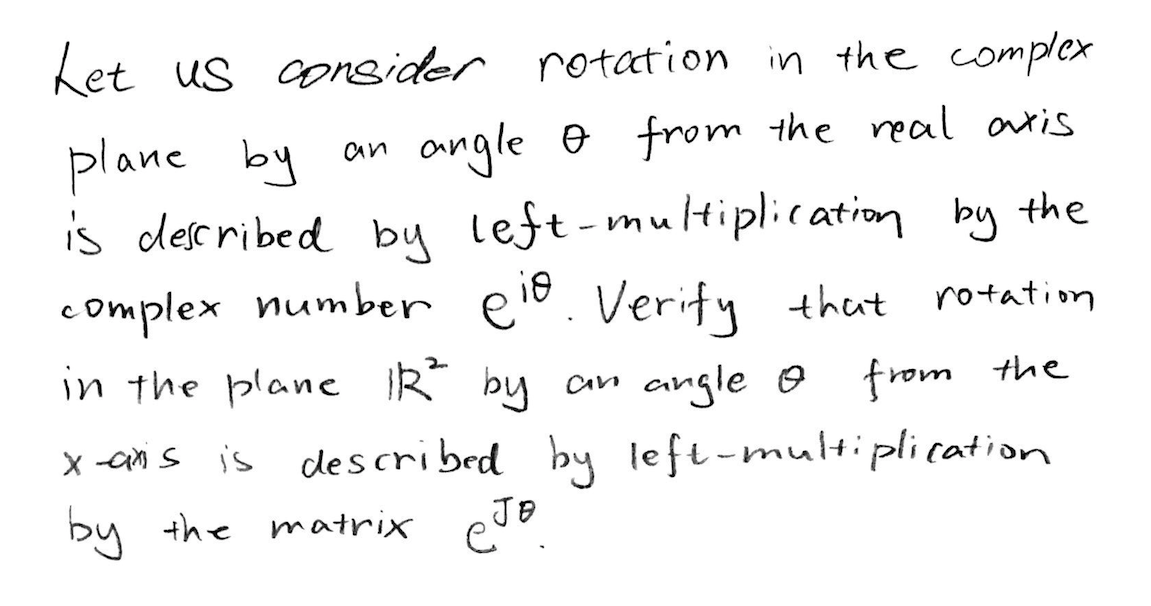 Let us consider rotation in the complex
plane by an angle θ from the real axis
is described by left-multiplication by the
complex number e^{iθ}. Verify that rotation
in the plane ℝ² by an angle θ from the
x-axis is described by left-multiplication
by the matrix e^{Jθ}.